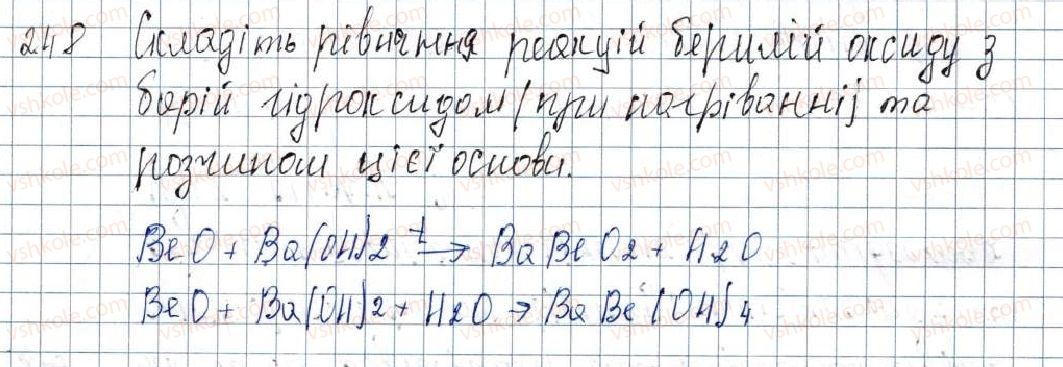 248 Складіть рівняння реакцій берилій оксиду з
барій гідроксидом (при нагріванні) та
розчином цієї основи.
BeO + Ba(OH)2 t→ BaBeO2 + H2O
BeO + Ba(OH)2 + H2O → BaBe(OH)4